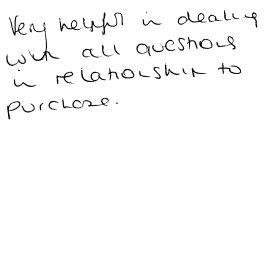 Very helpful in dealing
with all questions
in relationship to
purchase.